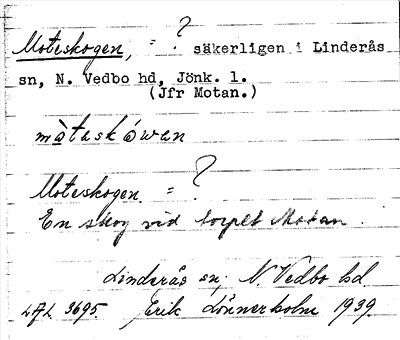 Moteskogen, = ? säkerligen i Linderås
sn, N. Vedbo hd, Jönk. l.
(Jfr Motan.)
mòteskówen
Moteskogen = ?
En skog vid torpet Motan.
Linderås sn, N. Vedbo hd.
LAL 3695. Erik Lönnerholm 1939.